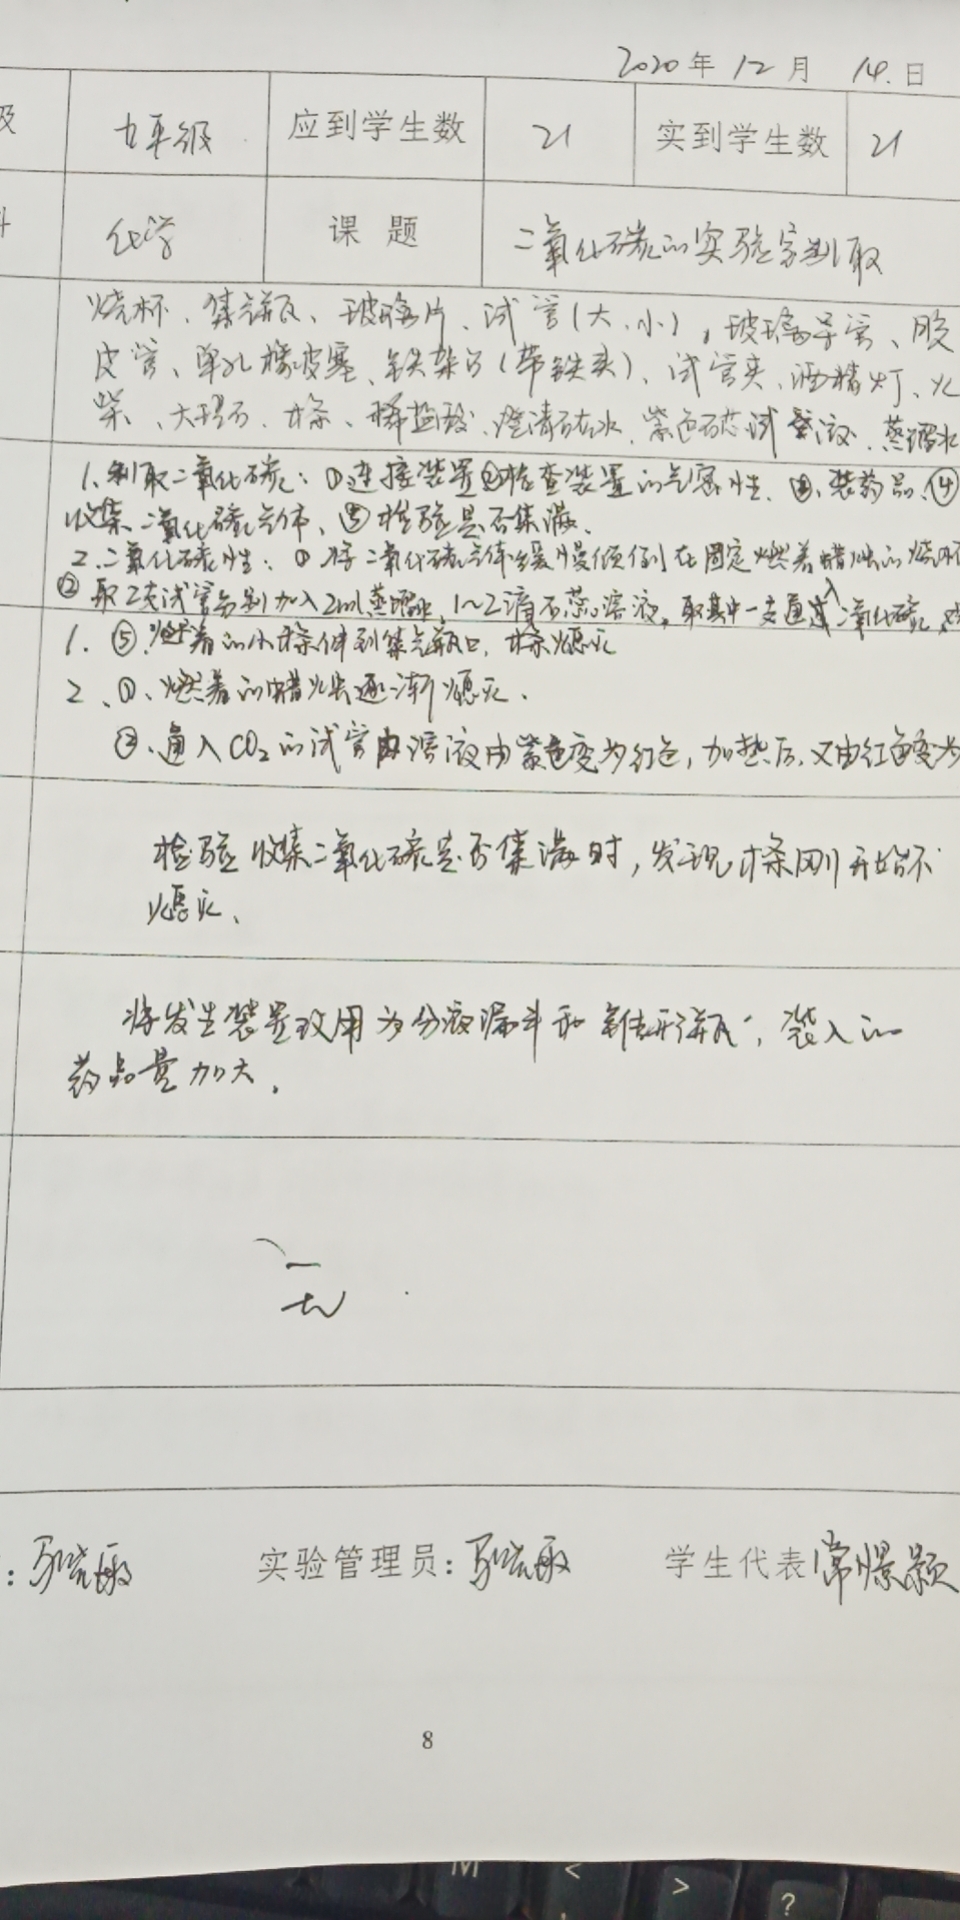 2020年 12月 14.日
级 九年级 应到学生数 21 实到学生数 21
科 化学 课题 二氧化碳的实验室制取
烧杯、集气瓶、玻璃片、试管(大、小),玻璃导管、胶
皮管、单孔橡皮塞、铁架台(带铁夹)、试管夹、酒精灯、火
柴、大理石、木条、稀盐酸、澄清石灰水、紫色石蕊试液、蒸馏水
1.制取二氧化碳:①连接装置②检查装置的气密性、③、装药品、④
收集二氧化碳气体、⑤检验是否集满、
2.二氧化碳性:①将二氧化碳气体缓慢倾倒在固定燃着蜡烛的烧杯
②取2支试管分别加入2ml蒸馏水,1~2滴石蕊溶液,取其中一支通入二氧化碳,
1. ⑤.燃着的小木条伸到集气瓶口,木条熄灭
2、①、燃着的蜡烛逐渐熄灭.
②、通入CO₂的试管中溶液由紫色变为红色,加热后,又由红色变为
检验收集二氧化碳是否集满时,发现木条刚开始不
熄灭、
将发生装置改用为分液漏斗和锥形瓶,装入的
药品量加大.
无
: 实验管理员: 学生代表
8
M < > ?